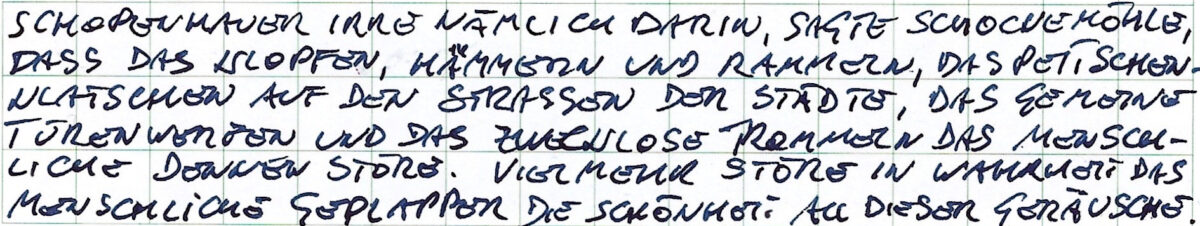 SCHOPENHAUER IRRE NÄMLICH DARIN, SAGTE SCHOCKEMÖHLE,
DASS DAS KLOPFEN, HÄMMERN UND RAMMERN, DAS PEITSCHEN-
KLATSCHEN AUF DEN STRASSEN DER STÄDTE, DAS GEMEINE
TÜRENWERFEN UND DAS ZWECKLOSE TROMMELN DAS MENSCH-
LICHE DENKEN STÖRE. VIELMEHR STÖRE IN WAHRHEIT DAS
MENSCHLICHE GEPLAPPER DIE SCHÖNHEIT ALL DIESER GERÄUSCHE.